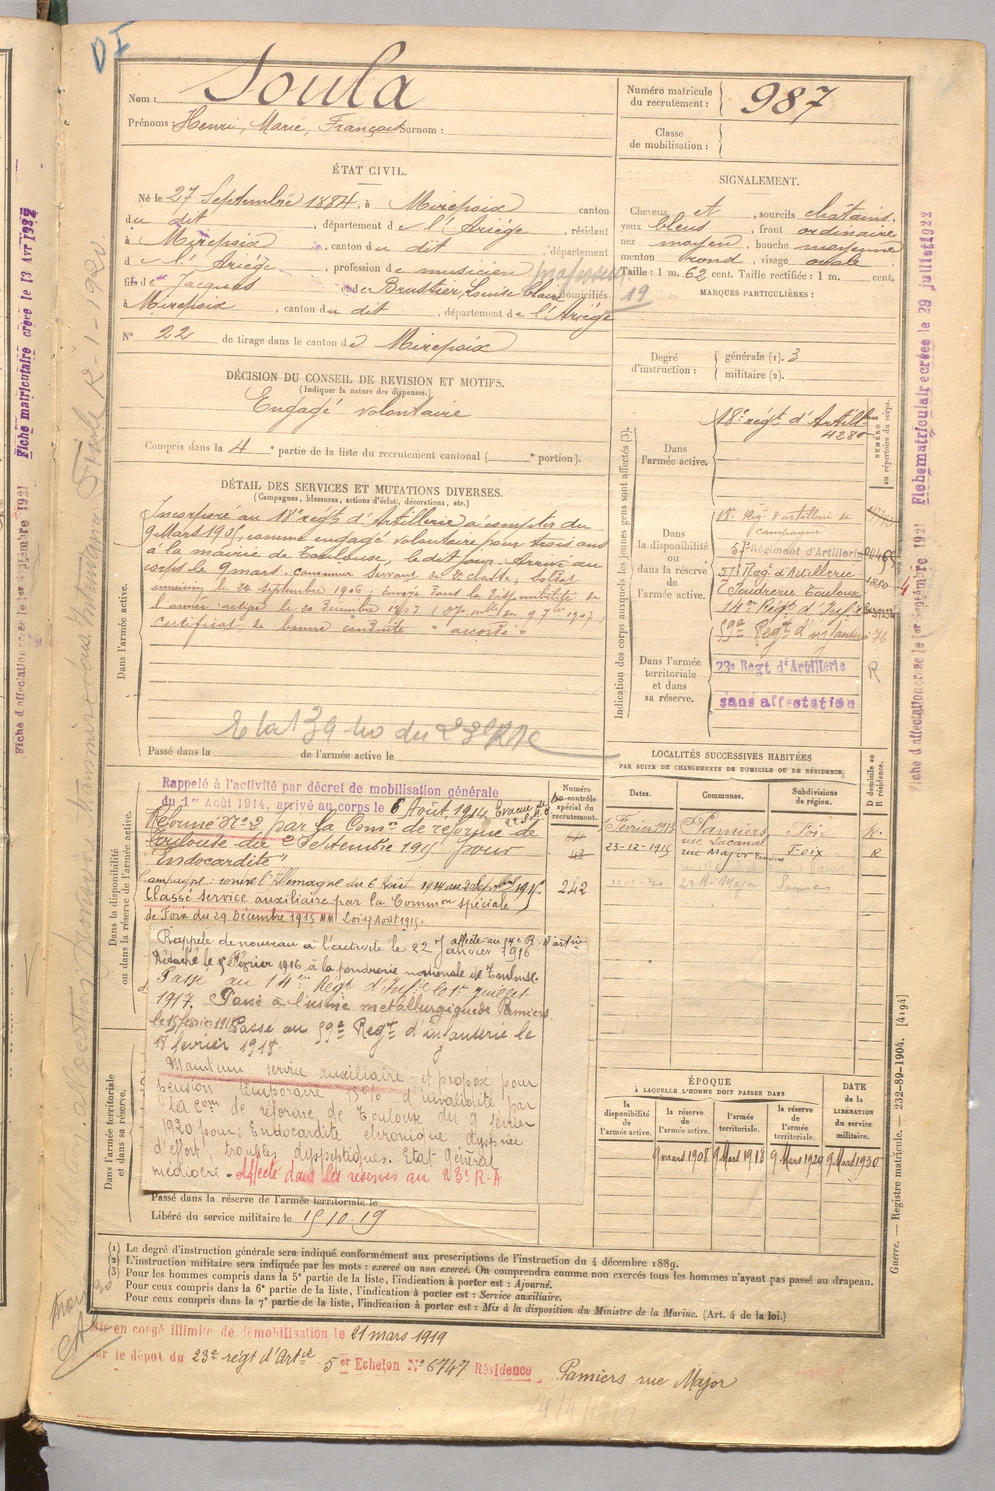 DI
Nom : Soula
Prénoms Henri, Marie, François Surnom :
Numéro matricule du recrutement : 987
Classe de mobilisation :
ÉTAT CIVIL.
Né le 27 Septembre 1884, à Mirepoix canton
du dit, département de l'Ariège, résidant
à Mirepoix, canton du dit, département
d e l'Ariège, profession de musicien professeur
fils de Jacques et de Brustier, Louise Claire domiciliés
19
à Mirepoix, canton du dit, département de l'Ariège
N° 22 de tirage dans le canton de Mirepoix
SIGNALEMENT.
Cheveux et, sourcils châtains.
yeux bleus, front ordinaire
nez moyen, bouche moyenne
menton rond, visage ovale
Taille : 1 m. 62 cent. Taille rectifiée : 1 m. cent.
MARQUES PARTICULIÈRES :
Degré d'instruction : générale (1). 3
militaire (2).
DÉCISION DU CONSEIL DE REVISION ET MOTIFS.
(Indiquer la nature des dispenses.)
Engagé volontaire
Compris dans la 4e partie de la liste du recrutement cantonal ( e portion).
DÉTAIL DES SERVICES ET MUTATIONS DIVERSES.
(Campagnes, blessures, actions d'éclat, décorations, etc.)
Dans l'armée active.
Incorporé au 18e régt d'Artillerie à compter du
9 Mars 1905, comme engagé volontaire pour trois ans
à la mairie de Toulouse, le dit jour. Arrivé au
corps le 9 mars. canonnier servant de 2e classe; Soldat
musicien le 24 septembre 1906; envoyé dans la disponibilité de
l'armée active le 20 Décembre 1907
certificat de bonne conduite "accordé"
Passé dans la de l'armée active le
Indication des corps auxquels les jeunes gens sont affectés (3).
NUMÉRO au répertoire du corps.
Dans l'armée active.
18e régt d'Artillerie
4280
Dans la disponibilité ou dans la réserve de l'armée active.
18e Rég. d'artillerie de campagne
57e Régiment d'Artillerie
57e Régt d'Artillerie 1880
Poudrerie Toulouse
14eme Régt d'Infie
Dans l'armée territoriale et dans sa réserve.
59e Regt d'infanterie
23e Regt d'Artillerie R
sans affectation
Dans la disponibilité ou dans la réserve de l'armée active.
Rappelé à l'activité par décret de mobilisation générale
du 1er Août 1914, arrivé au corps le 6 Août 1914
Réformé N° 2 par la Comon de réforme de
Toulouse du 2 Septembre 1915 pour
"Endocardite"
Campagne : contre l'Allemagne du 6 Août 1914 au 2 Septembre 1915.
Classé service auxiliaire par la Common spéciale
de Foix du 29 Décembre 1915 Loi 17 Août 1915.
Rappelé de nouveau à l'activité le 22 Janvier 1916 affecté au
Détaché le 5 Février 1916 à la poudrerie nationale de Toulouse.
Passé au 14eme Régt d'Infie le 1er Juillet
1917. Passé à l'usine métallurgique de Pamiers
le 15 février 1918 Passé au 59e Regt d'infanterie le
18 février 1918.
Dans l'armée territoriale et dans sa réserve.
Maintenu service auxiliaire et proposé pour
pension temporaire 15% d'invalidité par
la Com de réforme de Toulouse du 9 février
1920 pour: Endocardite chronique, dyspnée
d'effort, troubles dyspeptiques. Etat général
médiocre. Affecté dans les réserves au 23e R.A
Passé dans la réserve de l'armée territoriale le
Libéré du service militaire le 15-10-19
Numéro du contrôle spécial du recrutement.
242
LOCALITÉS SUCCESSIVES HABITÉES
PAR SUITE DE CHANGEMENTS DE DOMICILE OU DE RÉSIDENCE.
Dates. Communes. Subdivisions de région. D domicile ou R résidence.
Février 1913 Pamiers rue Lacanal Foix R.
23-12-1915 rue Major Pamiers Foix R
29 R. Major Pamiers
ÉPOQUE
À LAQUELLE L'HOMME DOIT PASSER DANS
la disponibilité de l'armée active. la réserve de l'armée active. l'armée territoriale. la réserve de l'armée territoriale. DATE de la LIBÉRATION du service militaire.
9 mars 1908 9 Mars 1918 9 Mars 1924 9 Mars 1930
(1) Le degré d'instruction générale sera indiqué conformément aux prescriptions de l'instruction du 4 décembre 1889.
(2) L'instruction militaire sera indiquée par les mots : exercé ou non exercé. On comprendra comme non exercés tous les hommes n'ayant pas passé au drapeau.
(3) Pour les hommes compris dans la 5e partie de la liste, l'indication à porter est : Ajourné.
Pour ceux compris dans la 6e partie de la liste, l'indication à porter est : Service auxiliaire.
Pour ceux compris dans la 7e partie de la liste, l'indication à porter est : Mis à la disposition du Ministre de la Marine. (Art. 4 de la loi.)
Mis en congé illimité de démobilisation le 21 mars 1919
par le dépôt du 23e régt d'Artie 5er Echelon N° 6747 Résidence Pamiers rue Major
Guerre. — Registre matricule. — 232-89-1904. [4194]
Fiche d'affectation créée le 1er Septembre 1921 Fiche matriculaire créée le 29 juillet 1922
Fiche d'affectation créée le 1er Septembre 1921 Fiche matriculaire créée le 13 Avr 1922